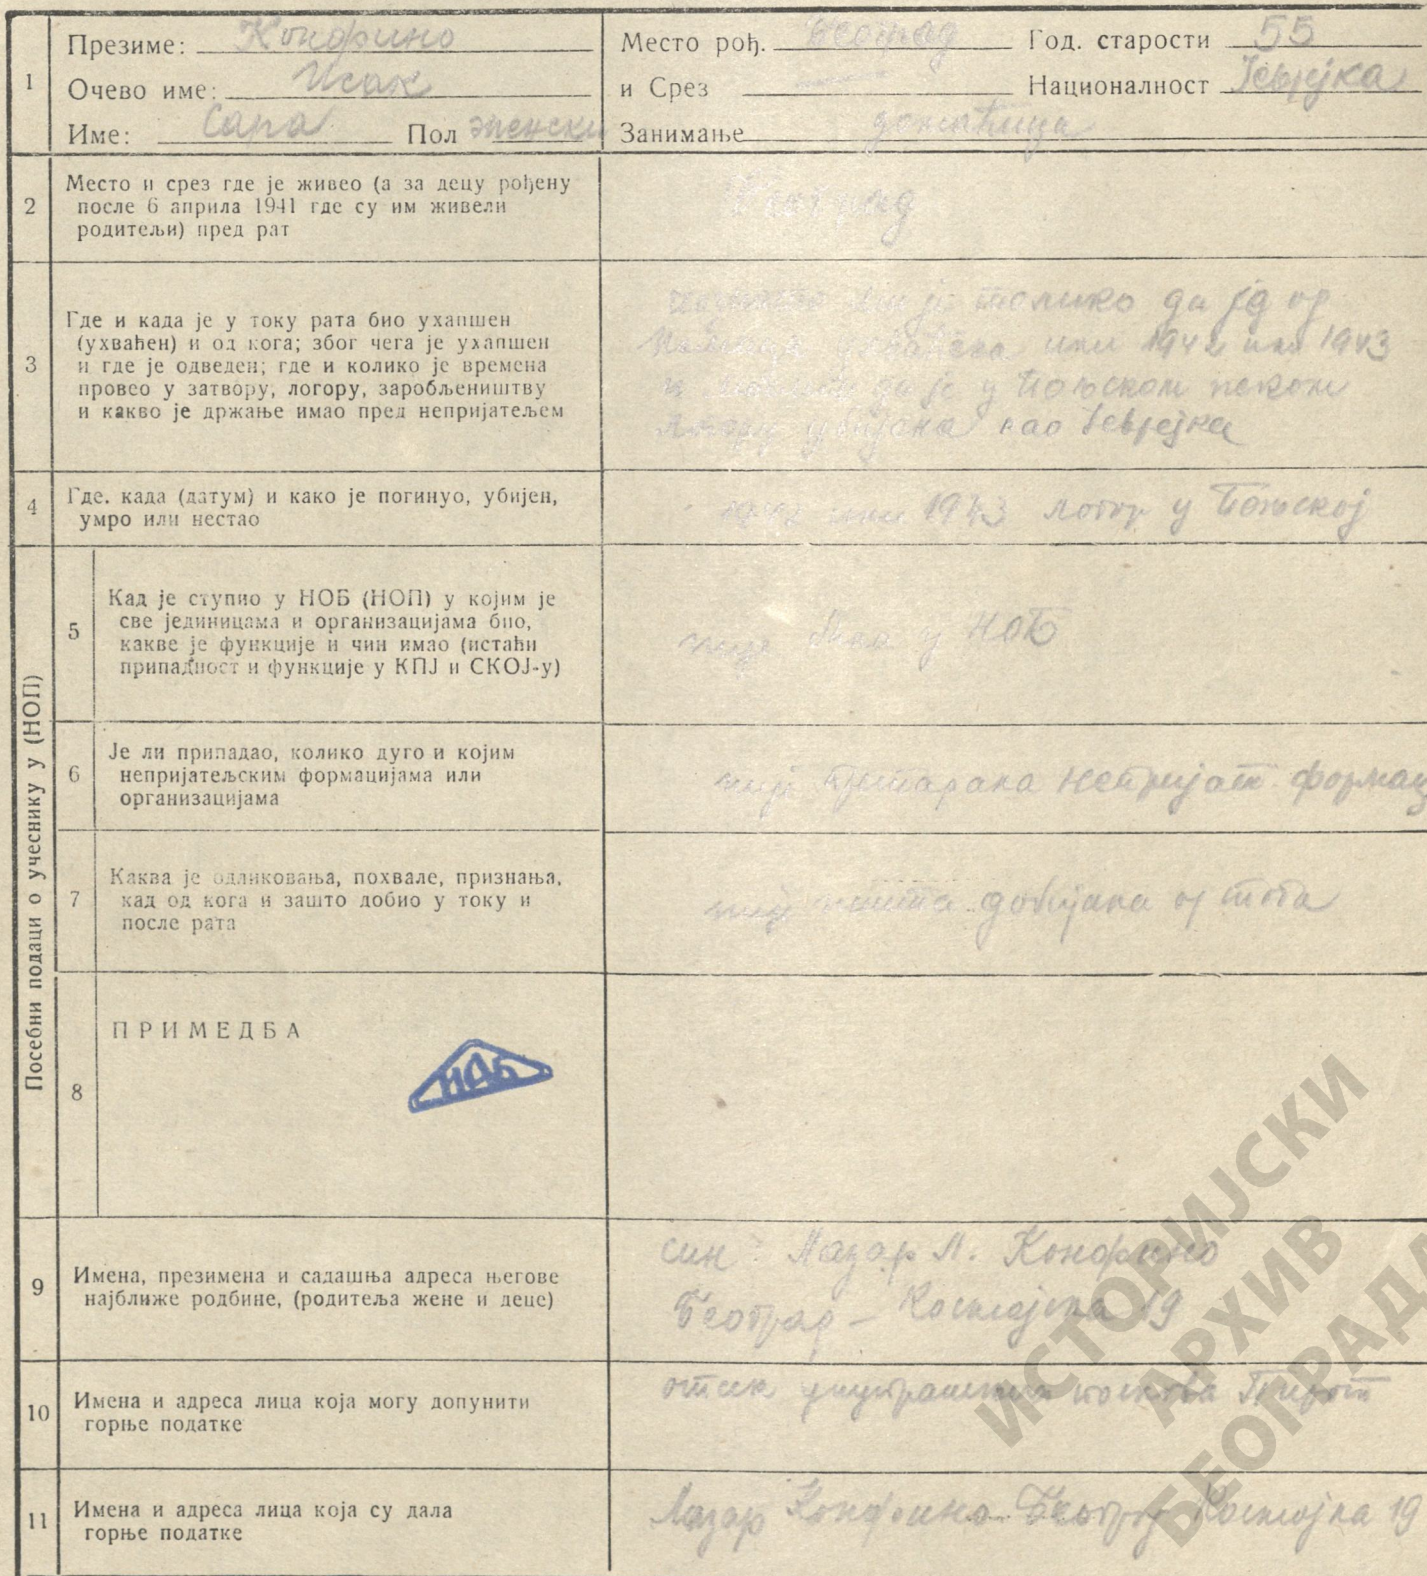 1
Презиме: Конфино
Очево име: Исак
Име: Сара Пол женски
Место рођ. Београд Год. старости 55
и Срез Националност Јеврејка
Занимање домаћица
2
Место и срез где је живео (а за децу рођену
после 6 априла 1941 где су им живели
родитељи) пред рат
Београд
3
Где и када је у току рата био ухапшен
(ухваћен) и од кога; због чега је ухапшен
и где је одведен; где и колико је времена
провео у затвору, логору, заробљеништву
и какво је држање имао пред непријатељем
је толико да је од
или 1942 или 1943
да је у Пољском неком
логору убијена као Јеврејка
4
Где. када (датум) и како је погинуо, убијен,
умро или нестао
1942 или 1943 логор у Пољској
Посебни подаци о учеснику у (НОП)
5
Кад је ступио у НОБ (НОП) у којим је
све јединицама и организацијама био,
какве је функције и чин имао (истаћи
припадност и функције у КПЈ и СКОЈ-у)
није била у НОБ
6
Је ли припадао, колико дуго и којим
непријатељским формацијама или
организацијама
није непријат. формац
7
Каква је одликовања, похвале, признања,
кад од кога и зашто добио у току и
после рата
није ништа добијала од тога
8
ПРИМЕДБА
ИАБ
9
Имена, презимена и садашња адреса његове
најближе родбине, (родитеља жене и деце)
син: Лазар М. Конфино
Београд – Космајска 19
10
Имена и адреса лица која могу допунити
горње податке
отсек унутрашњих послова Пирот
11
Имена и адреса лица која су дала
горње податке
Лазар Конфино Београд Космајска 19
ИСТОРИЈСКИ
АРХИВ
БЕОГРАДА